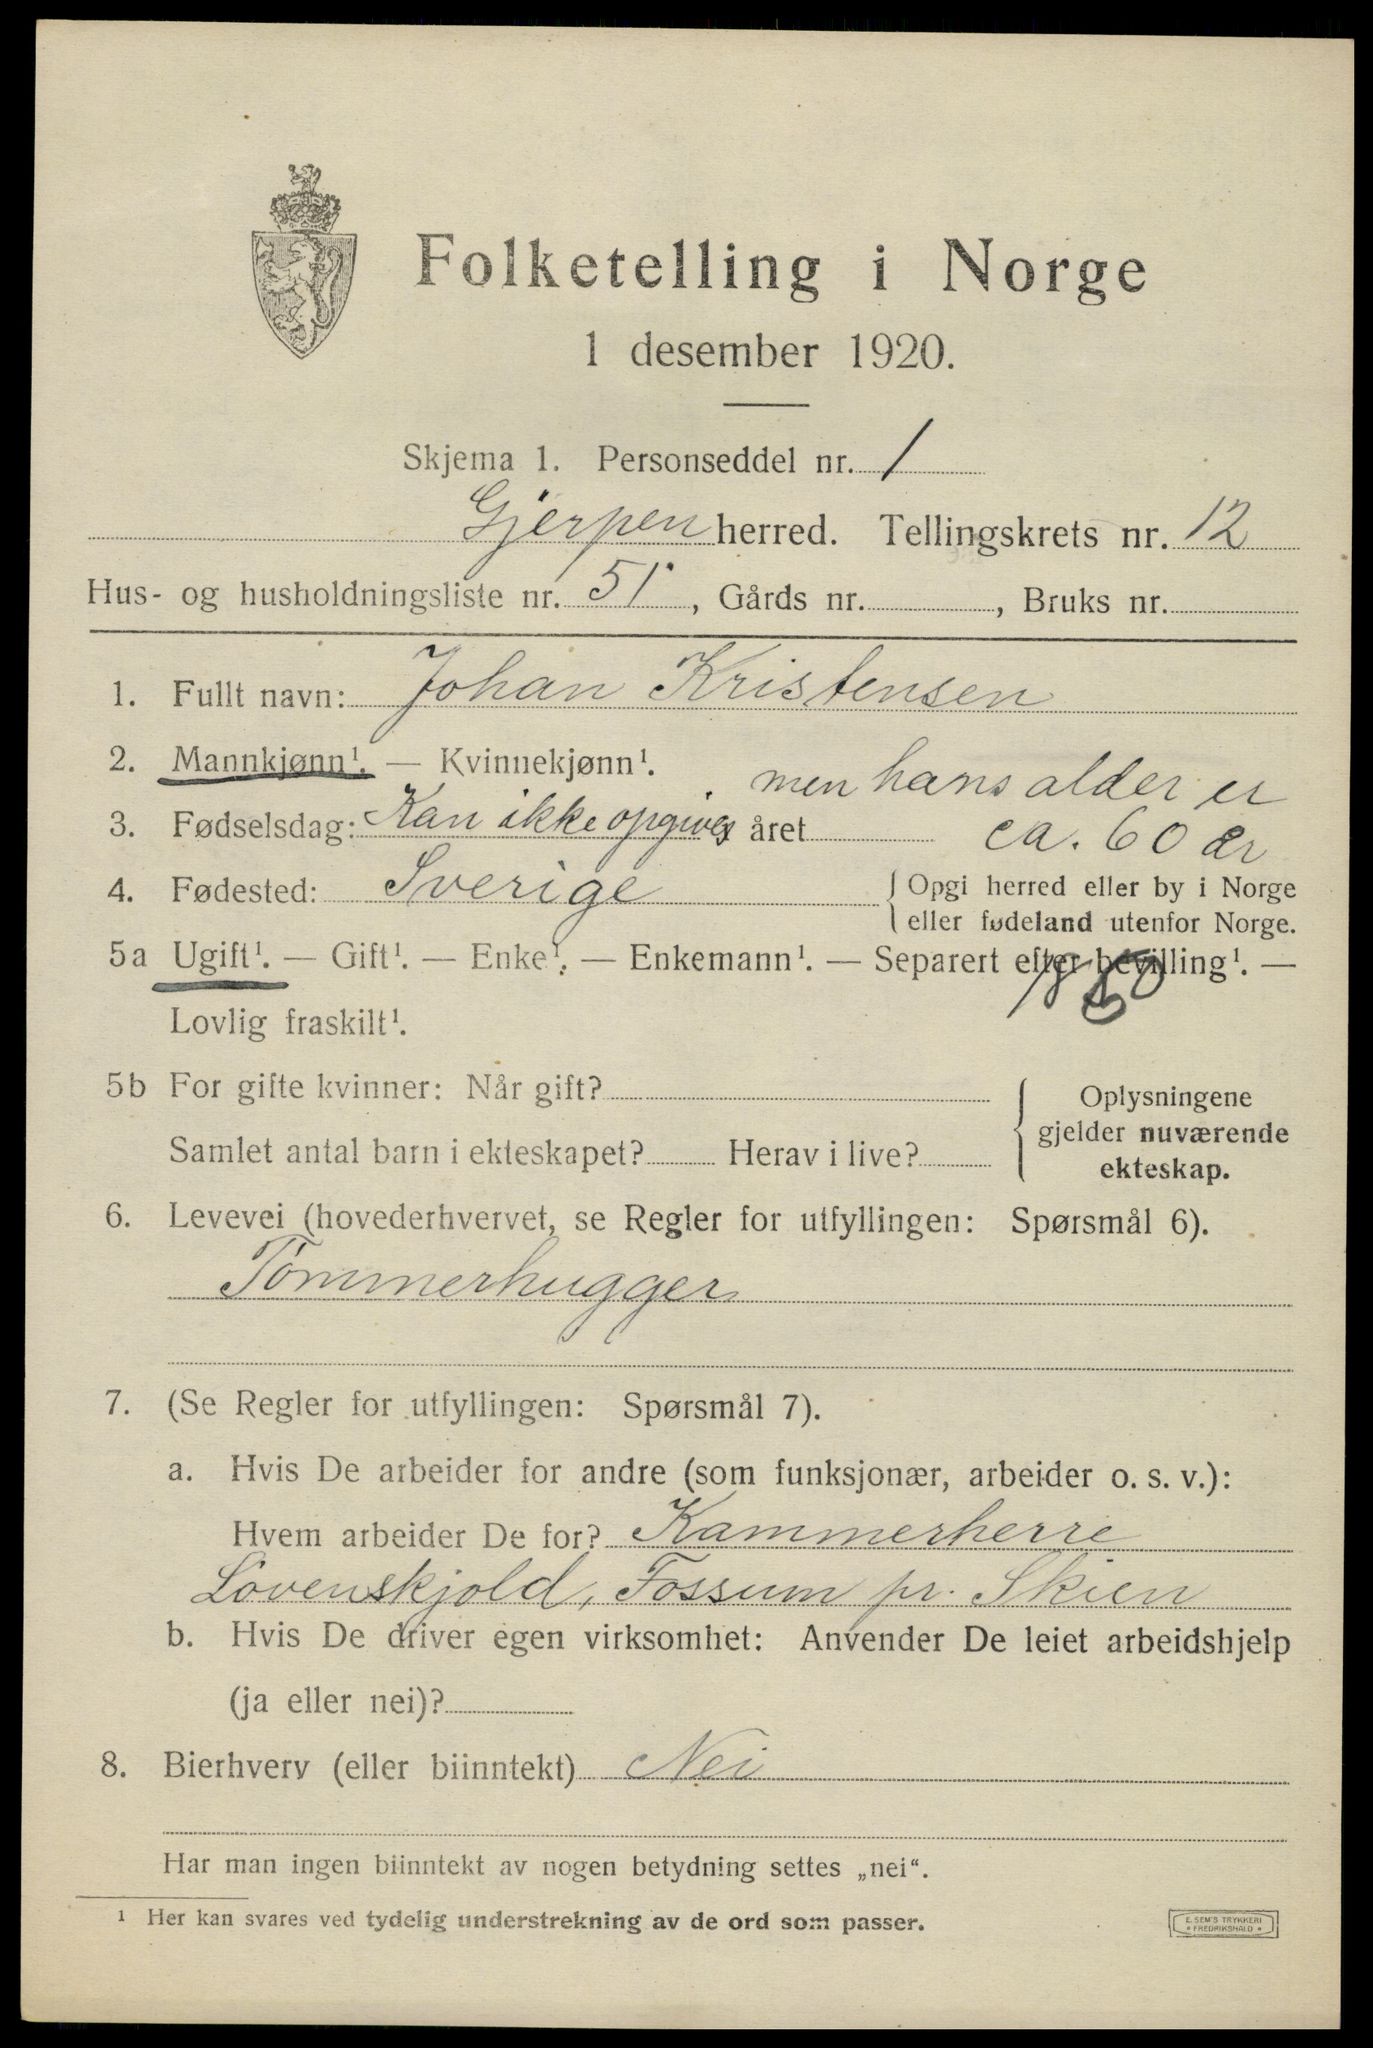 Folketelling i Norge
1 desember 1920.
Skjema 1. Personseddel nr. 1
Gjerpen herred. Tellingskrets nr. 12
Hus- og husholdningsliste nr. 51, Gårds nr. , Bruks nr.
1. Fullt navn: Johan Kristensen
2. Mannkjønn¹. — Kvinnekjønn¹.
men hans alder er
3. Fødselsdag: Kan ikke opgives året ca. 60 år
4. Fødested: Sverige
Opgi herred eller by i Norge
eller fødeland utenfor Norge.
5a Ugift¹. — Gift¹. — Enke¹. — Enkemann¹. — Separert efter bevilling¹. —
Lovlig fraskilt¹.
5b For gifte kvinner: Når gift?
Samlet antal barn i ekteskapet? Herav i live?
Oplysningene
gjelder nuværende
ekteskap.
6. Levevei (hovederhvervet, se Regler for utfyllingen: Spørsmål 6).
Tømmerhugger
7. (Se Regler for utfyllingen: Spørsmål 7).
a. Hvis De arbeider for andre (som funksjonær, arbeider o. s. v.):
Hvem arbeider De for? Kammerherre
Løvenskjold, Fossum pr. Skien
b. Hvis De driver egen virksomhet: Anvender De leiet arbeidshjelp
(ja eller nei)?
8. Bierhverv (eller biinntekt) Nei
Har man ingen biinntekt av nogen betydning settes „nei“.
¹ Her kan svares ved tydelig understrekning av de ord som passer.
E. SEM'S TRYKKERI
FREDRIKSHALD